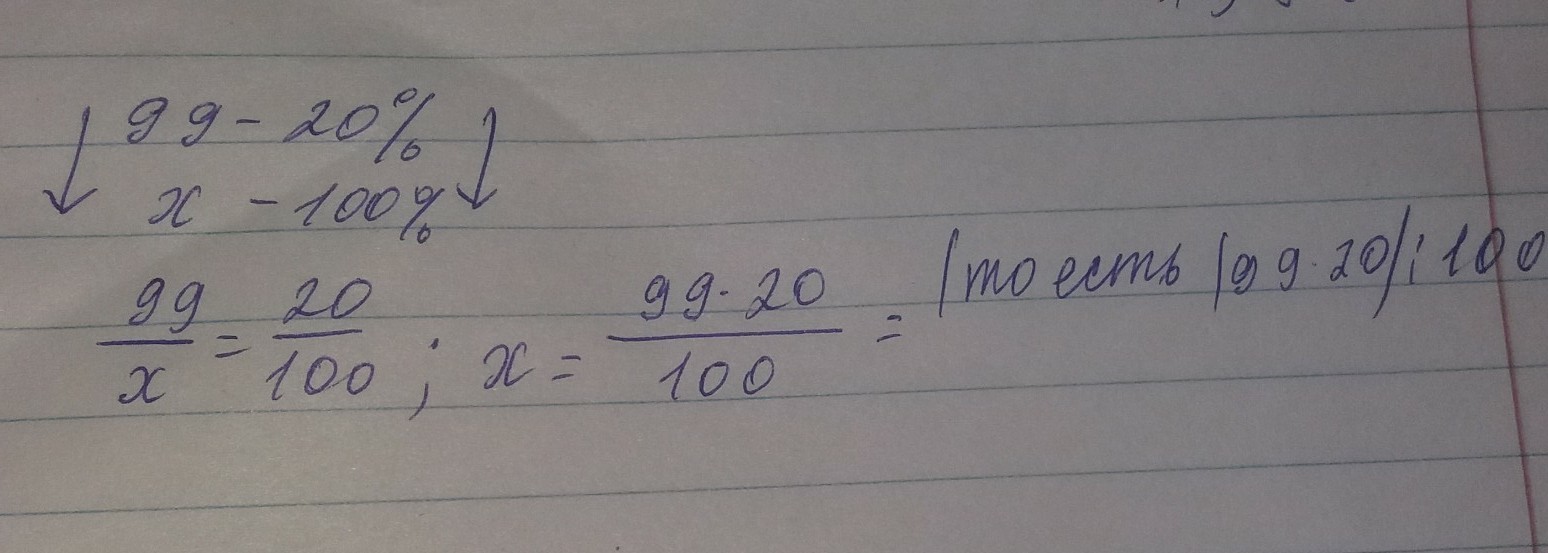 99 - 20%
x - 100%
99/x = 20/100 ; x = 99·20/100 = (то есть (99·20):100